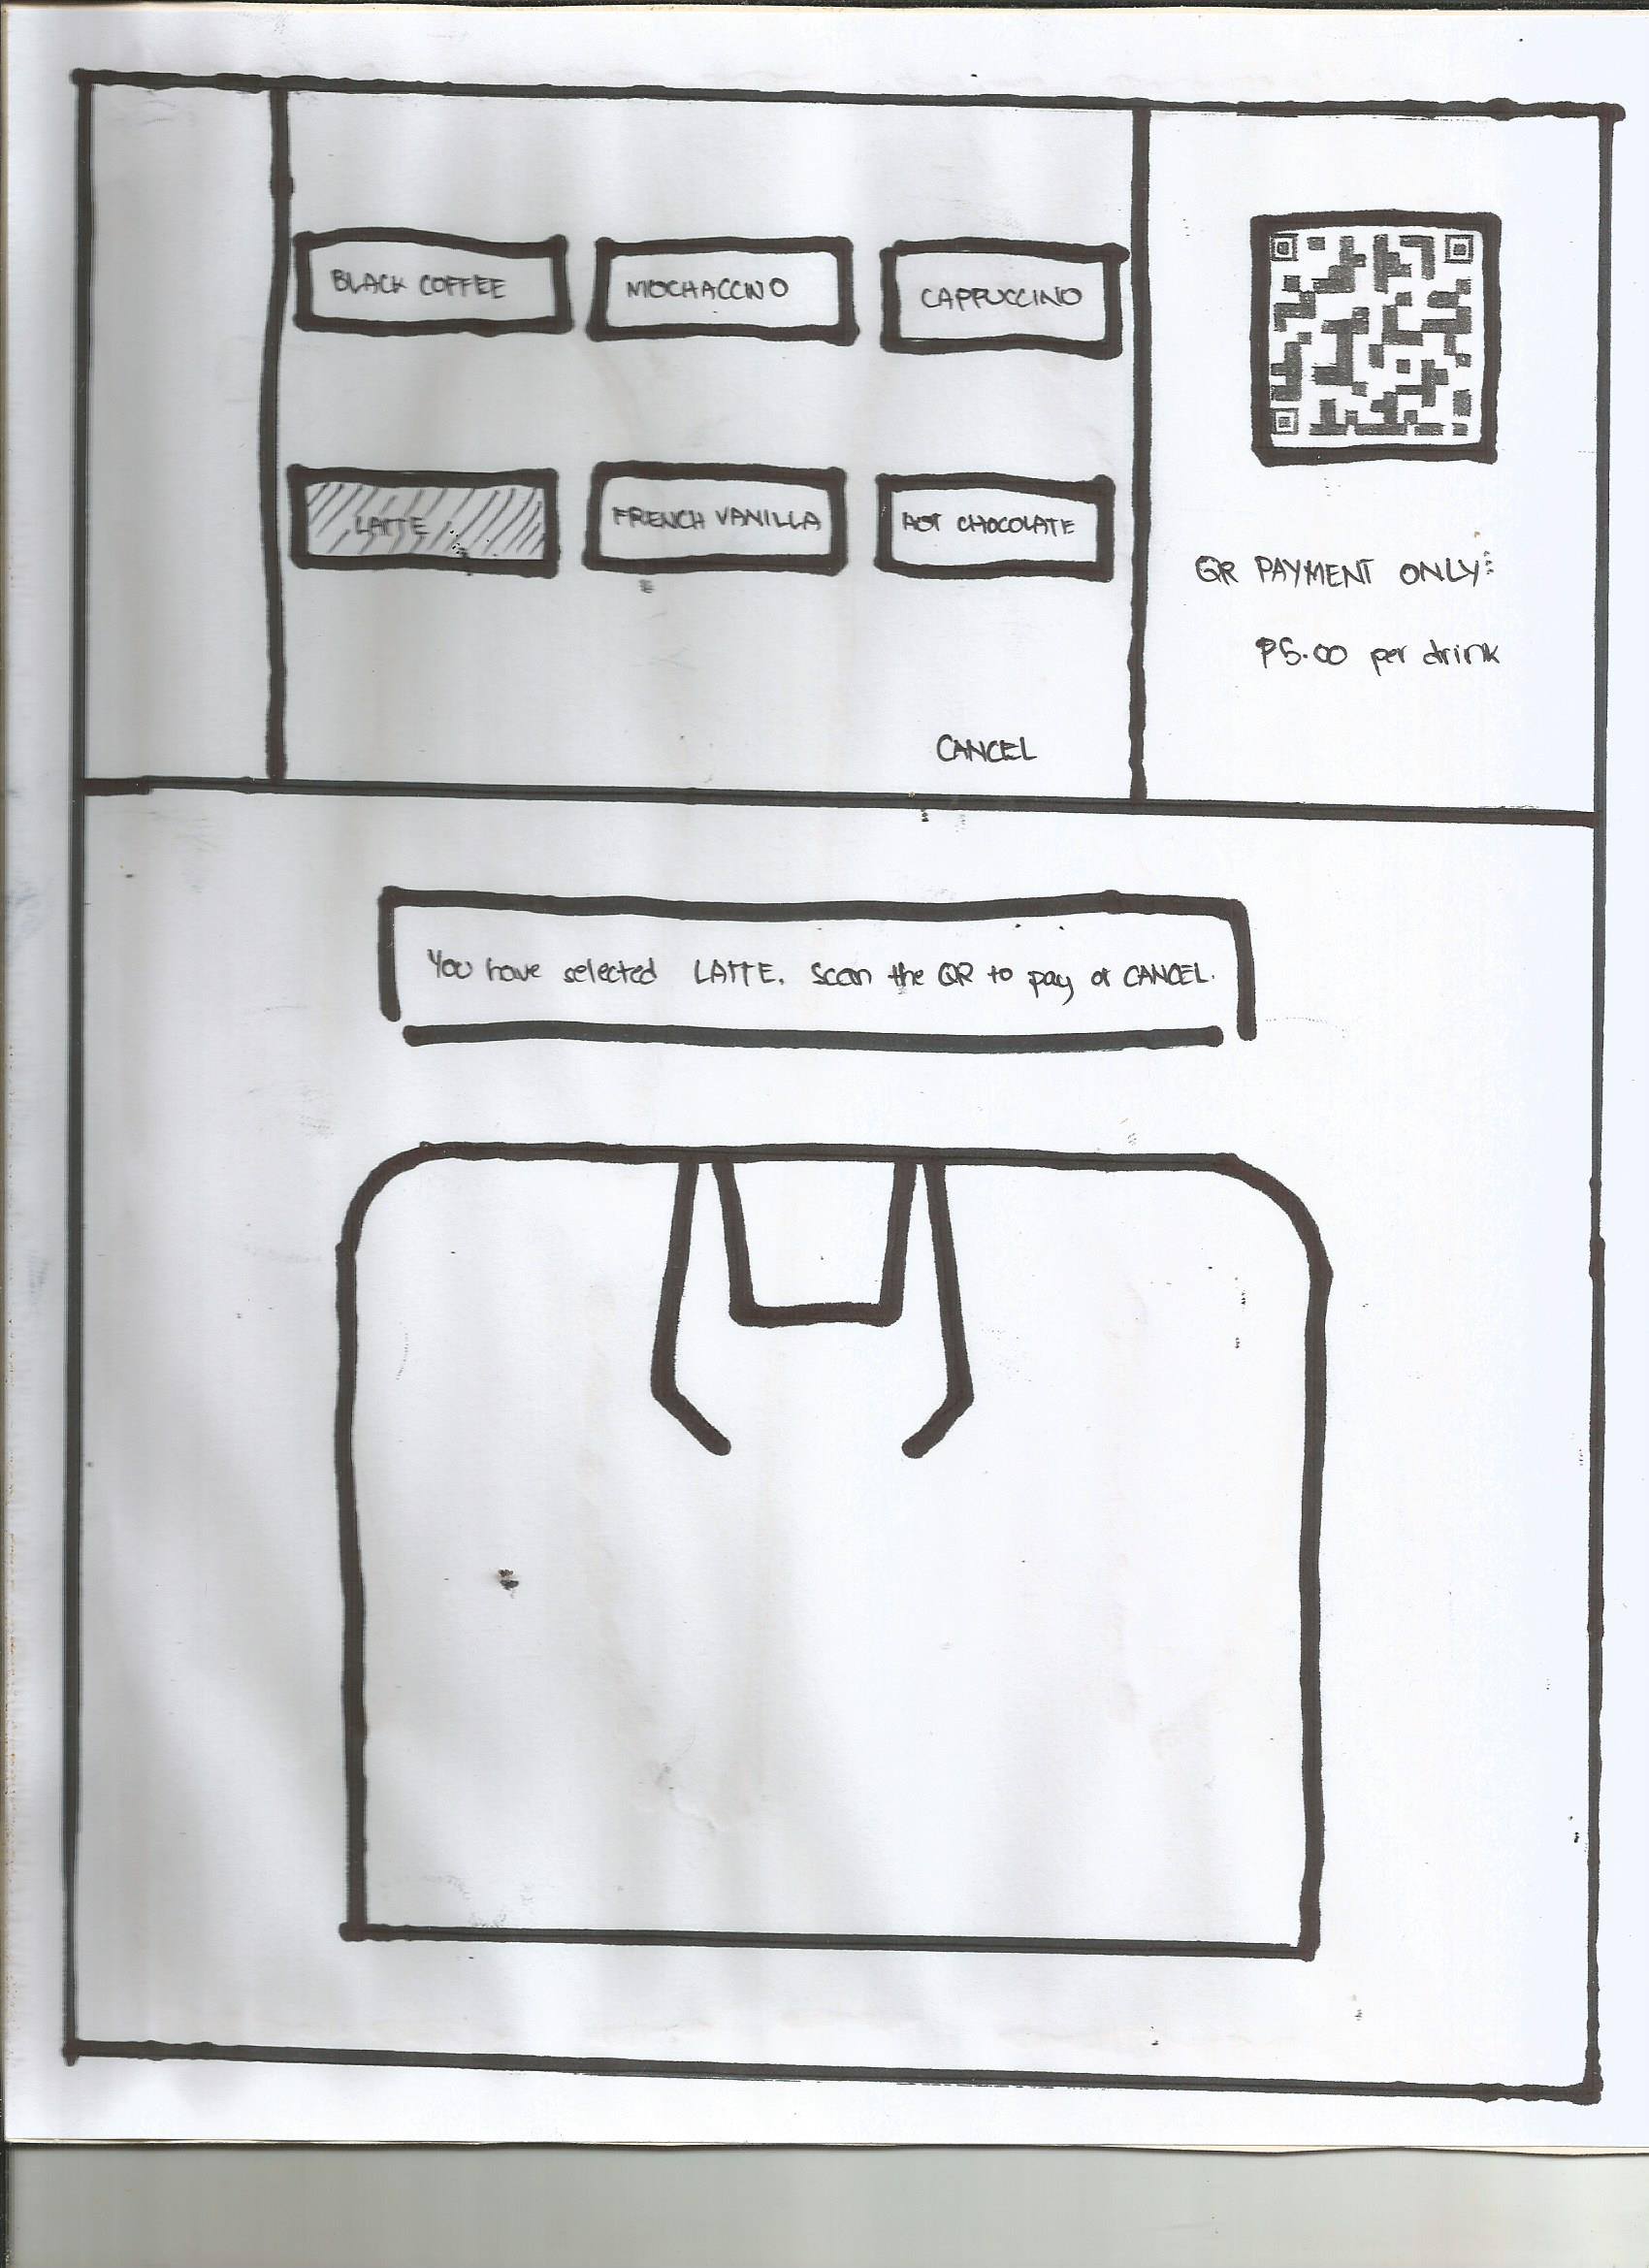 BLACK COFFEE MOCHACCINO CAPPUCCINO
LATTE FRENCH VANILLA HOT CHOCOLATE
CANCEL
QR PAYMENT ONLY:
₱5.00 per drink
You have selected LATTE. Scan the QR to pay or CANCEL.